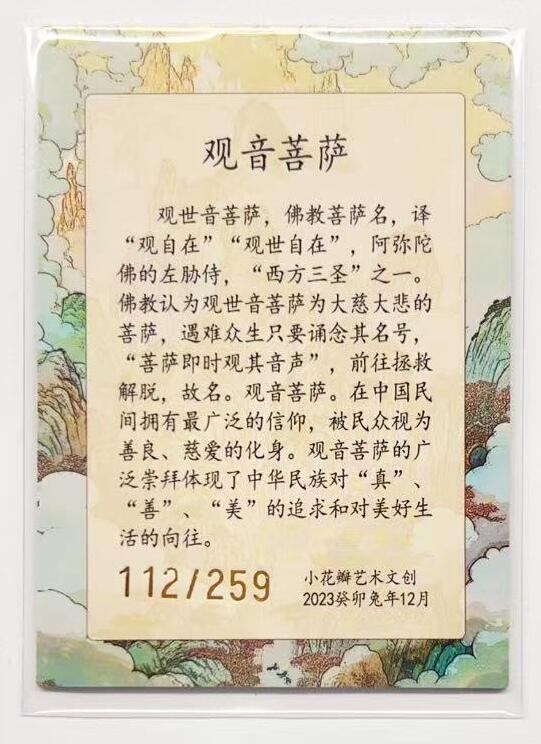 观音菩萨
观世音菩萨，佛教菩萨名，译
“观自在”“观世自在”，阿弥陀
佛的左胁侍，“西方三圣”之一。
佛教认为观世音菩萨为大慈大悲的
菩萨，遇难众生只要诵念其名号，
“菩萨即时观其音声”，前往拯救
解脱，故名。观音菩萨。在中国民
间拥有最广泛的信仰，被民众视为
善良、慈爱的化身。观音菩萨的广
泛崇拜体现了中华民族对“真”、
“善”、“美”的追求和对美好生
活的向往。
112/259
小花瓣艺术文创
2023癸卯兔年12月